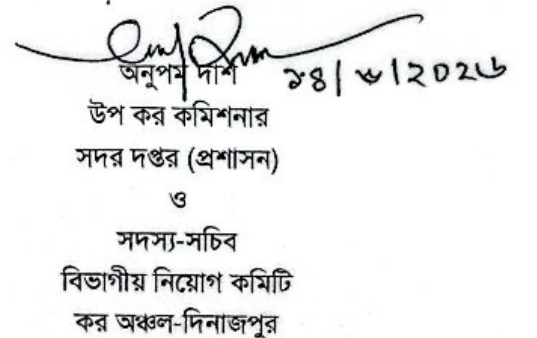 অনুপম দাশ ১৪/৬/২০২৬
উপ কর কমিশনার
সদর দপ্তর (প্রশাসন)
ও
সদস্য-সচিব
বিভাগীয় নিয়োগ কমিটি
কর অঞ্চল-দিনাজপুর